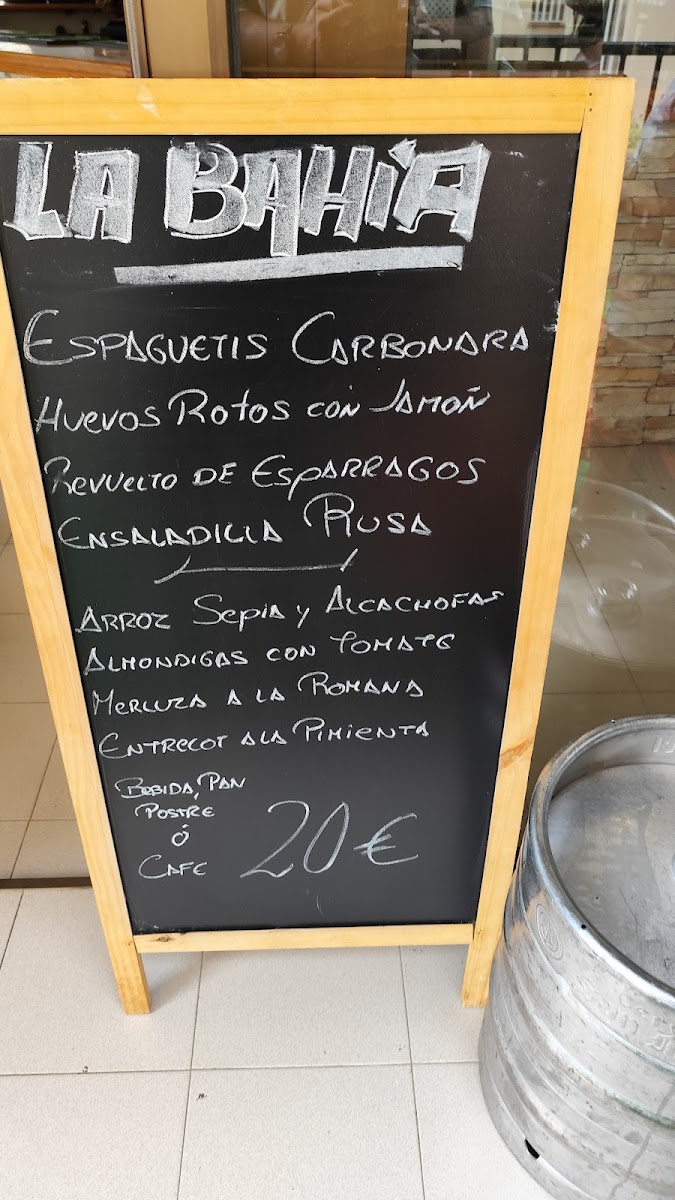 LA BAHIA
ESPAGUETIS CARBONARA
HUEVOS ROTOS CON JAMOÑ
REVUELTO DE ESPARRAGOS
ENSALADILLA RUSA
ARROZ SEPIA Y ALCACHOFAS
ALMONDIGAS CON TOMATE
MERLUZA A LA ROMANA
ENTRECOT A LA PIMIENTA
BEBIDA, PAN
POSTRE
Ó
CAFE
20€